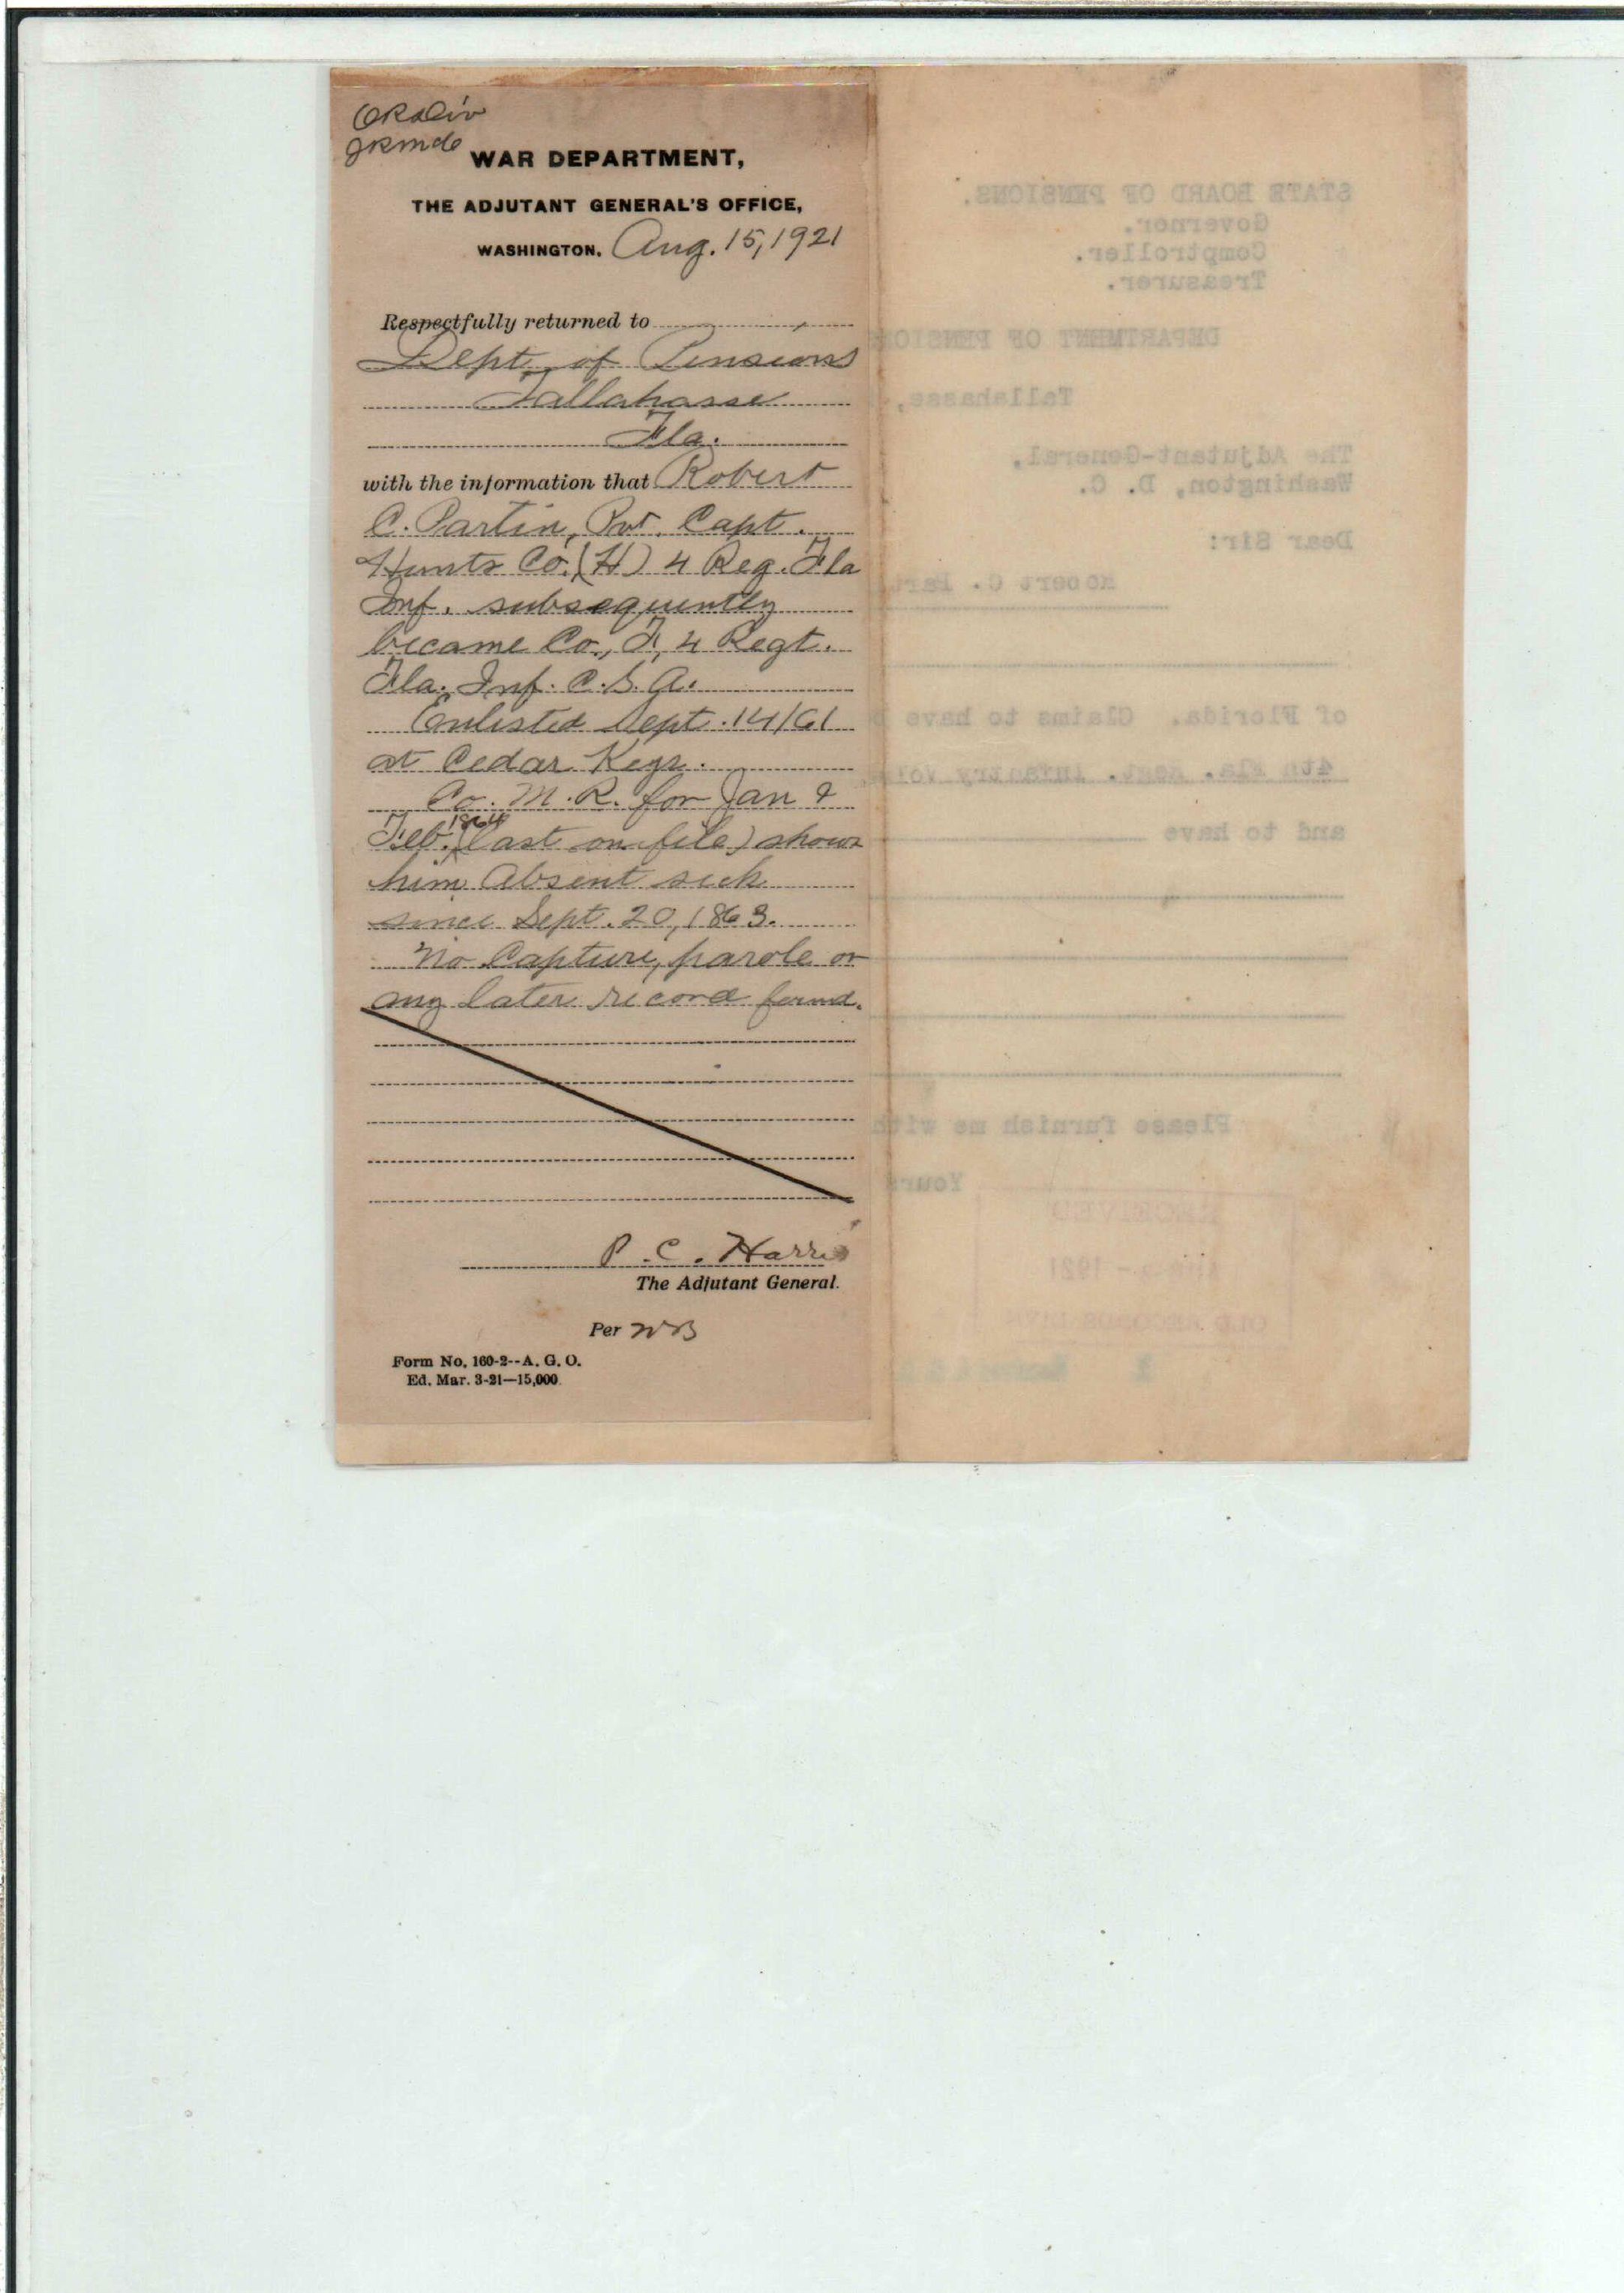 WAR DEPARTMENT,
THE ADJUTANT GENERAL'S OFFICE,
WASHINGTON. Aug. 15, 1921
Respectfully returned to
Dept. of Pensions
Tallahasse
Fla.
with the information that Robert
C. Partin, Pvt. Capt.
Hunts Co. (H) 4 Reg. Fla
Inf. subsequently
became Co., F, 4 Regt.
Fla. Inf. C.S.A.
Enlisted Sept. 14/61
at Cedar Keys.
Co. M.R. for Jan &
Feb. 1864 (last on file) shows
him Absent sick
since Sept. 20, 1863.
No Capture, parole or
any later record found.
P. C. Harris
The Adjutant General.
Per WB
Form No. 160-2--A. G. O.
Ed. Mar. 3-21—15,000.
STATE BOARD OF PENSIONS.
Governor.
Comptroller.
Treasurer.
DEPARTMENT OF PENSION
Tallahasse,
The Adjutant-General,
Washington, D. C.
Dear Sir:
Robert C. Part
of Florida. Claims to have
4th Fla. Regt. Infantry Vol
and to have
Please furnish me with
Yours
RECEIVED
1921
OLD RECORDS